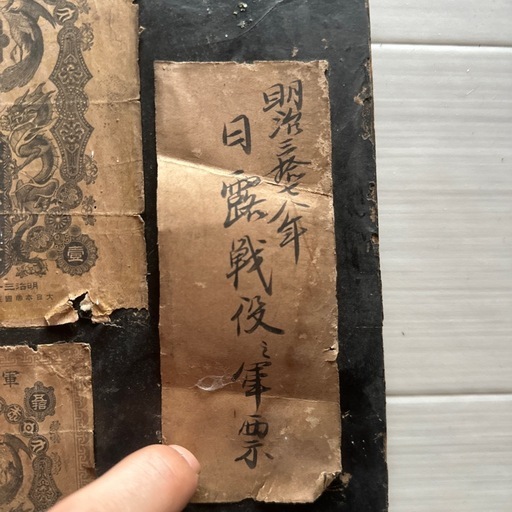 明治三拾七八年
日露戦役之軍票
壹
明治三十
大日本帝國
軍